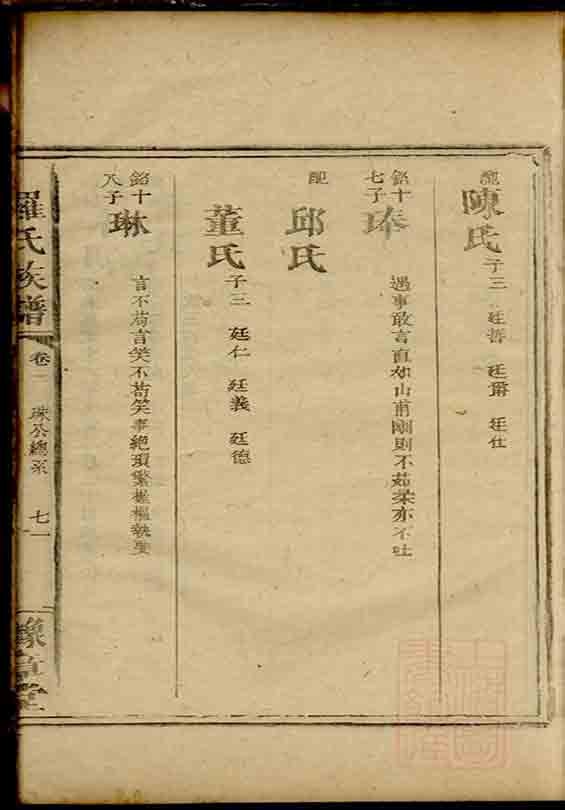 配 陳氏 子三 廷哲 廷爵 廷仕
銘十七子 琫 遇事敢言直如山甫剛則不茹柔亦不吐
配 邱氏
董氏 子三 廷仁 廷義 廷德
銘十八子 琳 言不苟言笑不苟笑事絶瑣繁機樞執要
羅氏族譜 卷二 珠公總系 七一 豫章堂